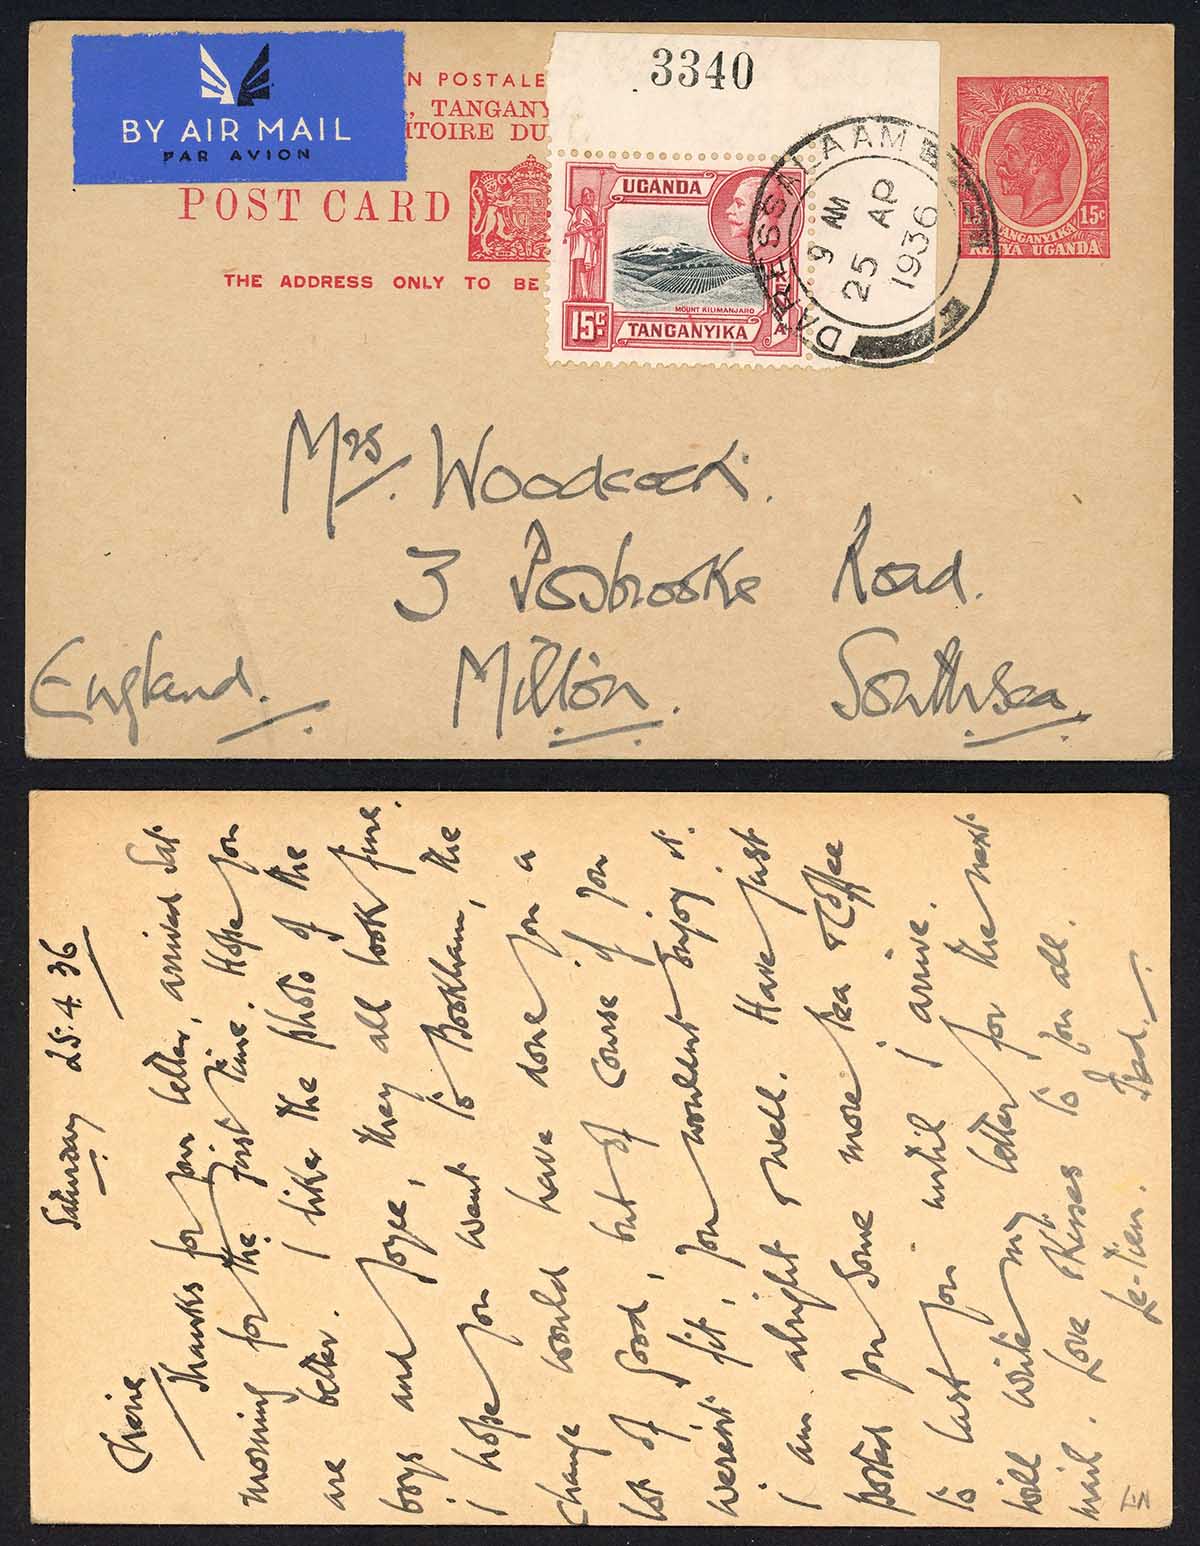 BY AIR MAIL
PAR AVION
N POSTALE
, TANGANY
ITOIRE DU
POST CARD
THE ADDRESS ONLY TO BE
3340
UGANDA
MOUNT KILIMANJARO
15c
TANGANYIKA
DAR ES SALAAM
9 AM
25 AP
1936
15c
TANGANYIKA
KENYA UGANDA
Mrs. Woodcock.
3 Posbrooke Road.
Milton. Southsea.
England.
Saturday 25.4.36
Cherie
Thanks for your letter, arrived Sat
morning for the first time. Hope you
are better. I like the photo of the
boys and Joyce, they all look fine.
I hope you went to Bookham, the
change would have done you a
lot of good, but of course if you
weren't fit, you wouldn't enjoy it.
I am alright & well. Have just
posted you some more tea & Coffee
to last you until I arrive.
will write my letter for the next
mail. Love & Kisses to you all.
Le-Tien.